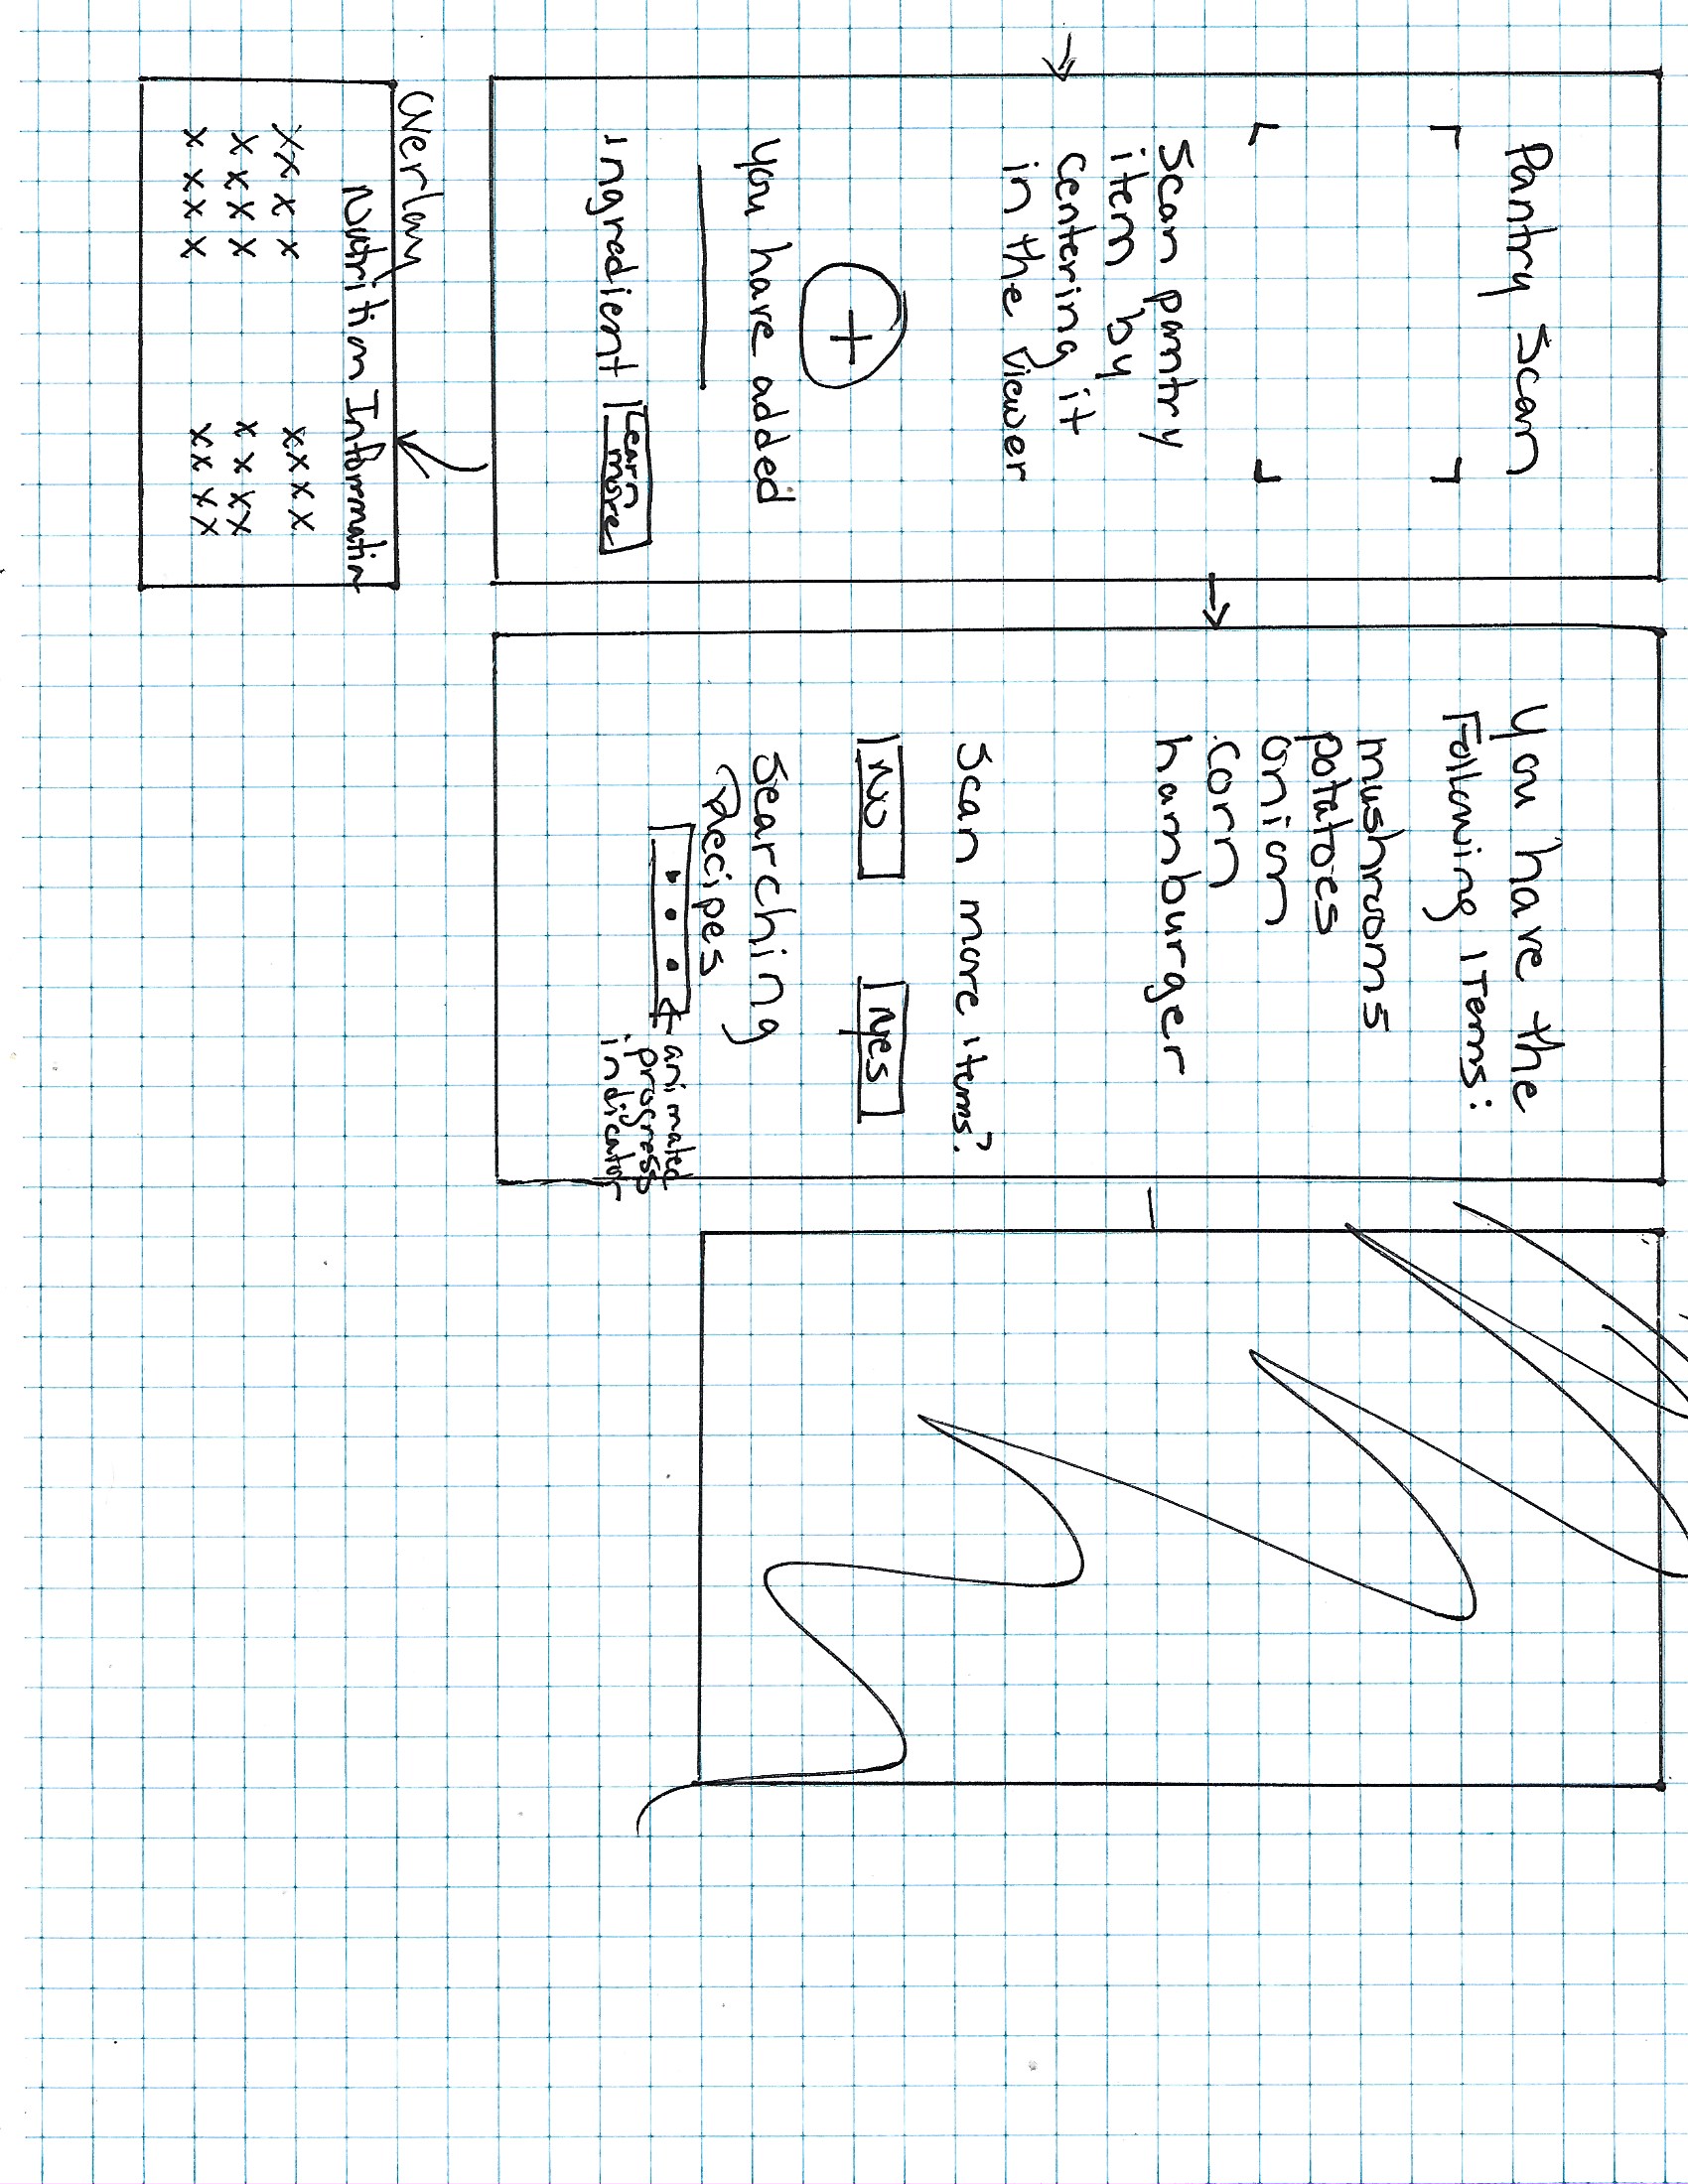 Pantry Scan
Scan pantry
item by
centering it
in the viewer
+
you have added
ingredient
Learn
more
Overlay
Nutrition Information
xxxx xxxx
xxxx xxxx
xxxx xxxx
You have the
Following ITems:
mushrooms
potatoes
onion
corn
hamburger
Scan more items?
No yes
Searching
Recipes
animated
progress
indicator